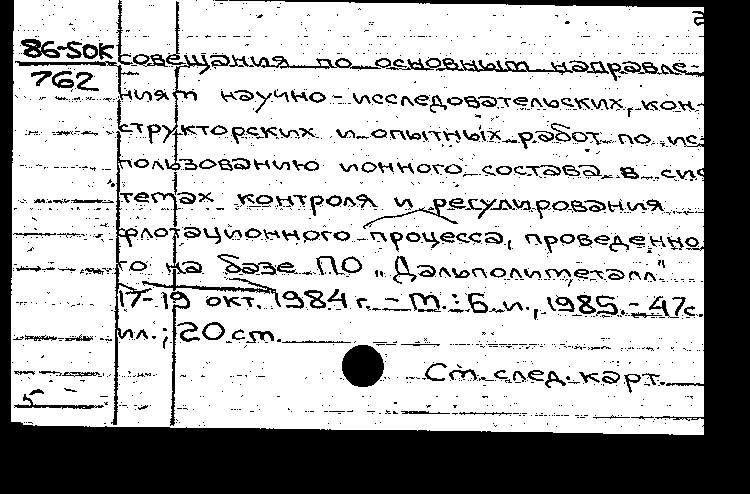 2
86-50К совещания по основным направле-
762
ниям научно-исследовательских, кон-
структорских и опытных работ по ис-
пользованию ионного состава в сис
темах контроля и регулирования
флотационного процесса, проведенно
го на базе ПО „Дальполиметалл"
17-19 окт. 1984 г. - М.: Б. и., 1985. - 47с.
ил.; 20 см.
См. след. карт.
5